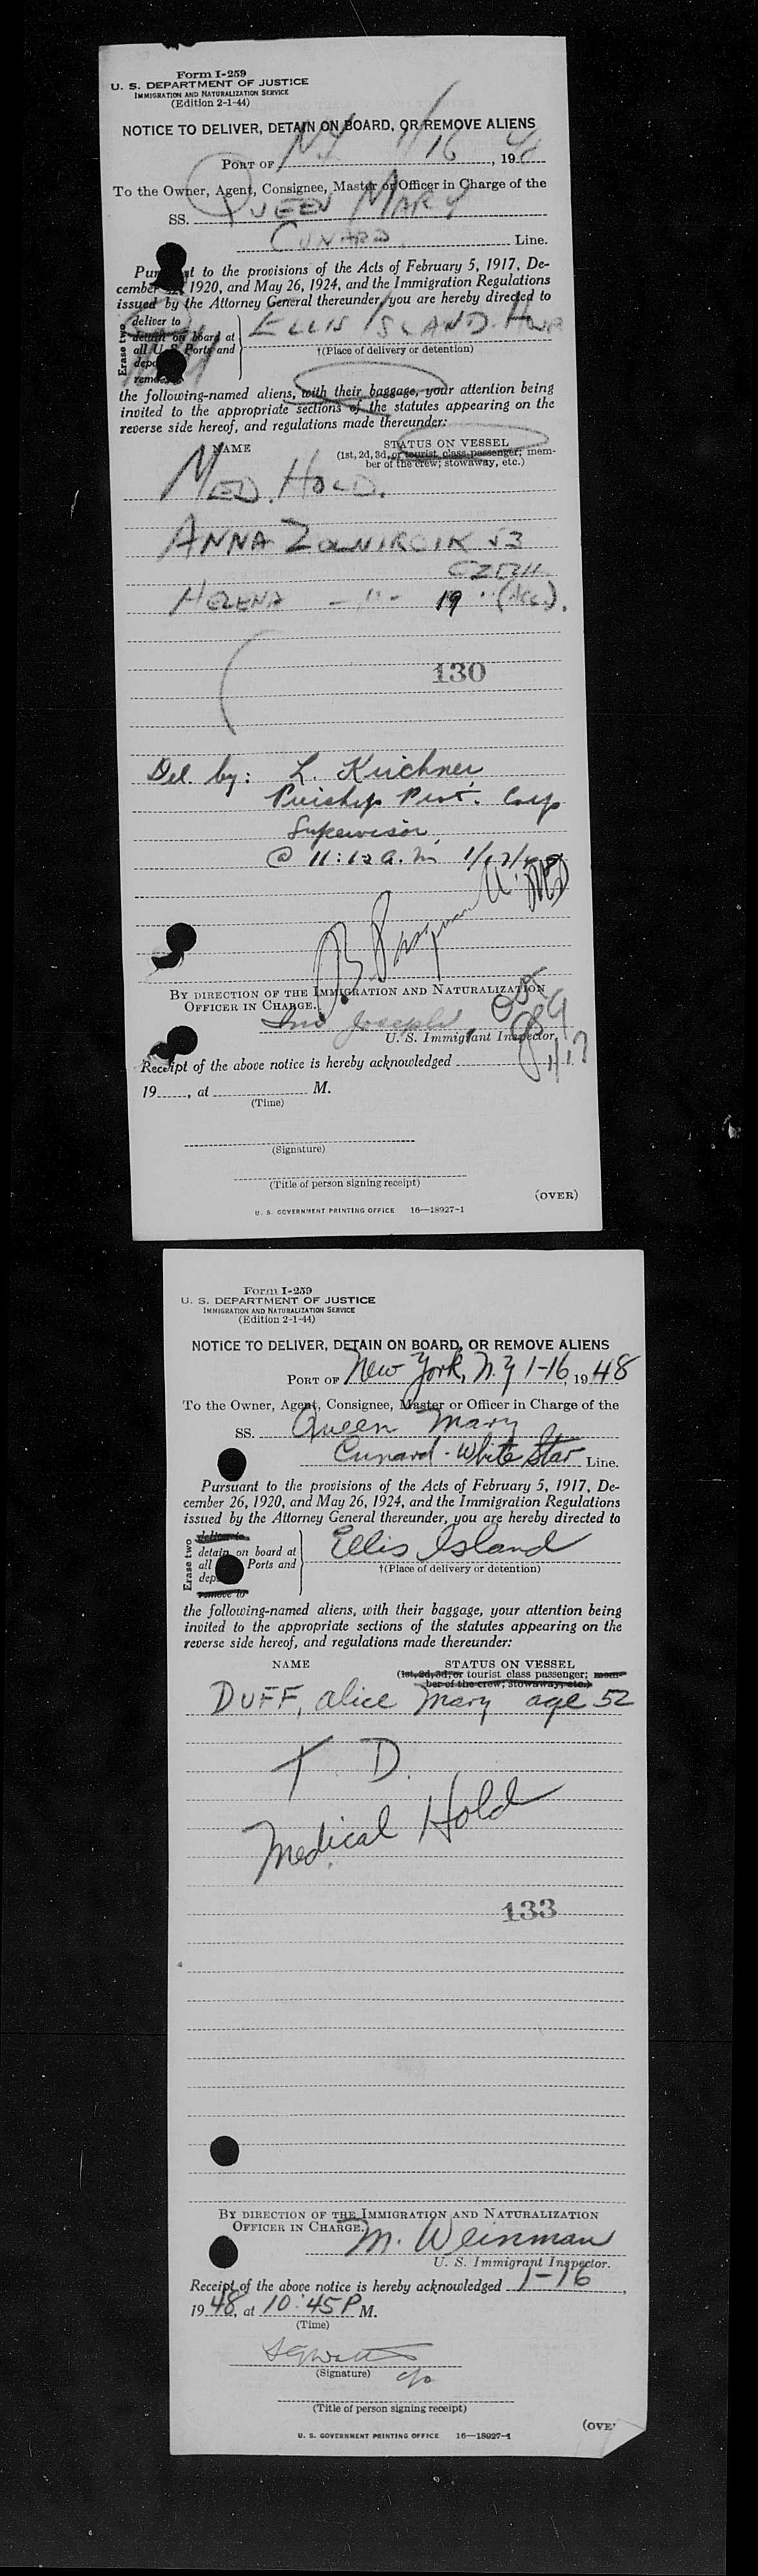 Form I-259
U. S. DEPARTMENT OF JUSTICE
IMMIGRATION AND NATURALIZATION SERVICE
(Edition 2-1-44)
NOTICE TO DELIVER, DETAIN ON BOARD, OR REMOVE ALIENS
PORT OF NY 1/16, 1948
To the Owner, Agent, Consignee, Master or Officer in Charge of the
SS. QUEEN MARY
CUNARD Line.
to the provisions of the Acts of February 5, 1917, De-
cember 1920, and May 26, 1924, and the Immigration Regulations
issued by the Attorney General thereunder, you are hereby directed to
Erase two
deliver to
detain on board at
all U.S. Ports and
ELLIS ISLAND
†(Place of delivery or detention)
the following-named aliens, with their baggage, your attention being
invited to the appropriate sections of the statutes appearing on the
reverse side hereof, and regulations made thereunder:
NAME
STATUS ON VESSEL
(1st, 2d, 3d, or tourist class passenger; mem-
ber of the crew; stowaway, etc.)
MED. HOLD.
ANNA 53
HELENA - " - 19 " (Acc).
130
Del. by: L. Kirchner
Corp
Supervisor
@ 11:12 a.m.
BY DIRECTION OF THE IMMIGRATION AND NATURALIZATION
OFFICER IN CHARGE.
Joseph
U. S. Immigrant Inspector.
Receipt of the above notice is hereby acknowledged
19, at M.
(Time)
(Signature)
(Title of person signing receipt)
(OVER)
U. S. GOVERNMENT PRINTING OFFICE 16—18927-1
Form I-259
U. S. DEPARTMENT OF JUSTICE
IMMIGRATION AND NATURALIZATION SERVICE
(Edition 2-1-44)
NOTICE TO DELIVER, DETAIN ON BOARD, OR REMOVE ALIENS
PORT OF New York, N.Y 1-16, 1948
To the Owner, Agent, Consignee, Master or Officer in Charge of the
SS. Queen Mary
Cunard - White Star Line.
Pursuant to the provisions of the Acts of February 5, 1917, De-
cember 26, 1920, and May 26, 1924, and the Immigration Regulations
issued by the Attorney General thereunder, you are hereby directed to
Erase two
deliver to
detain on board at
all Ports and
remove to
Ellis Island
†(Place of delivery or detention)
the following-named aliens, with their baggage, your attention being
invited to the appropriate sections of the statutes appearing on the
reverse side hereof, and regulations made thereunder:
NAME
STATUS ON VESSEL
(1st, 2d, 3d, or tourist class passenger; mem-
ber of the crew; stowaway, etc.)
DUFF, Alice Mary age 52
T D.
Medical Hold
133
BY DIRECTION OF THE IMMIGRATION AND NATURALIZATION
OFFICER IN CHARGE.
M. Weinman
U. S. Immigrant Inspector.
Receipt of the above notice is hereby acknowledged 1-16,
1948, at 10:45 P M.
(Time)
(Signature)
(Title of person signing receipt)
U. S. GOVERNMENT PRINTING OFFICE 16—18927-1